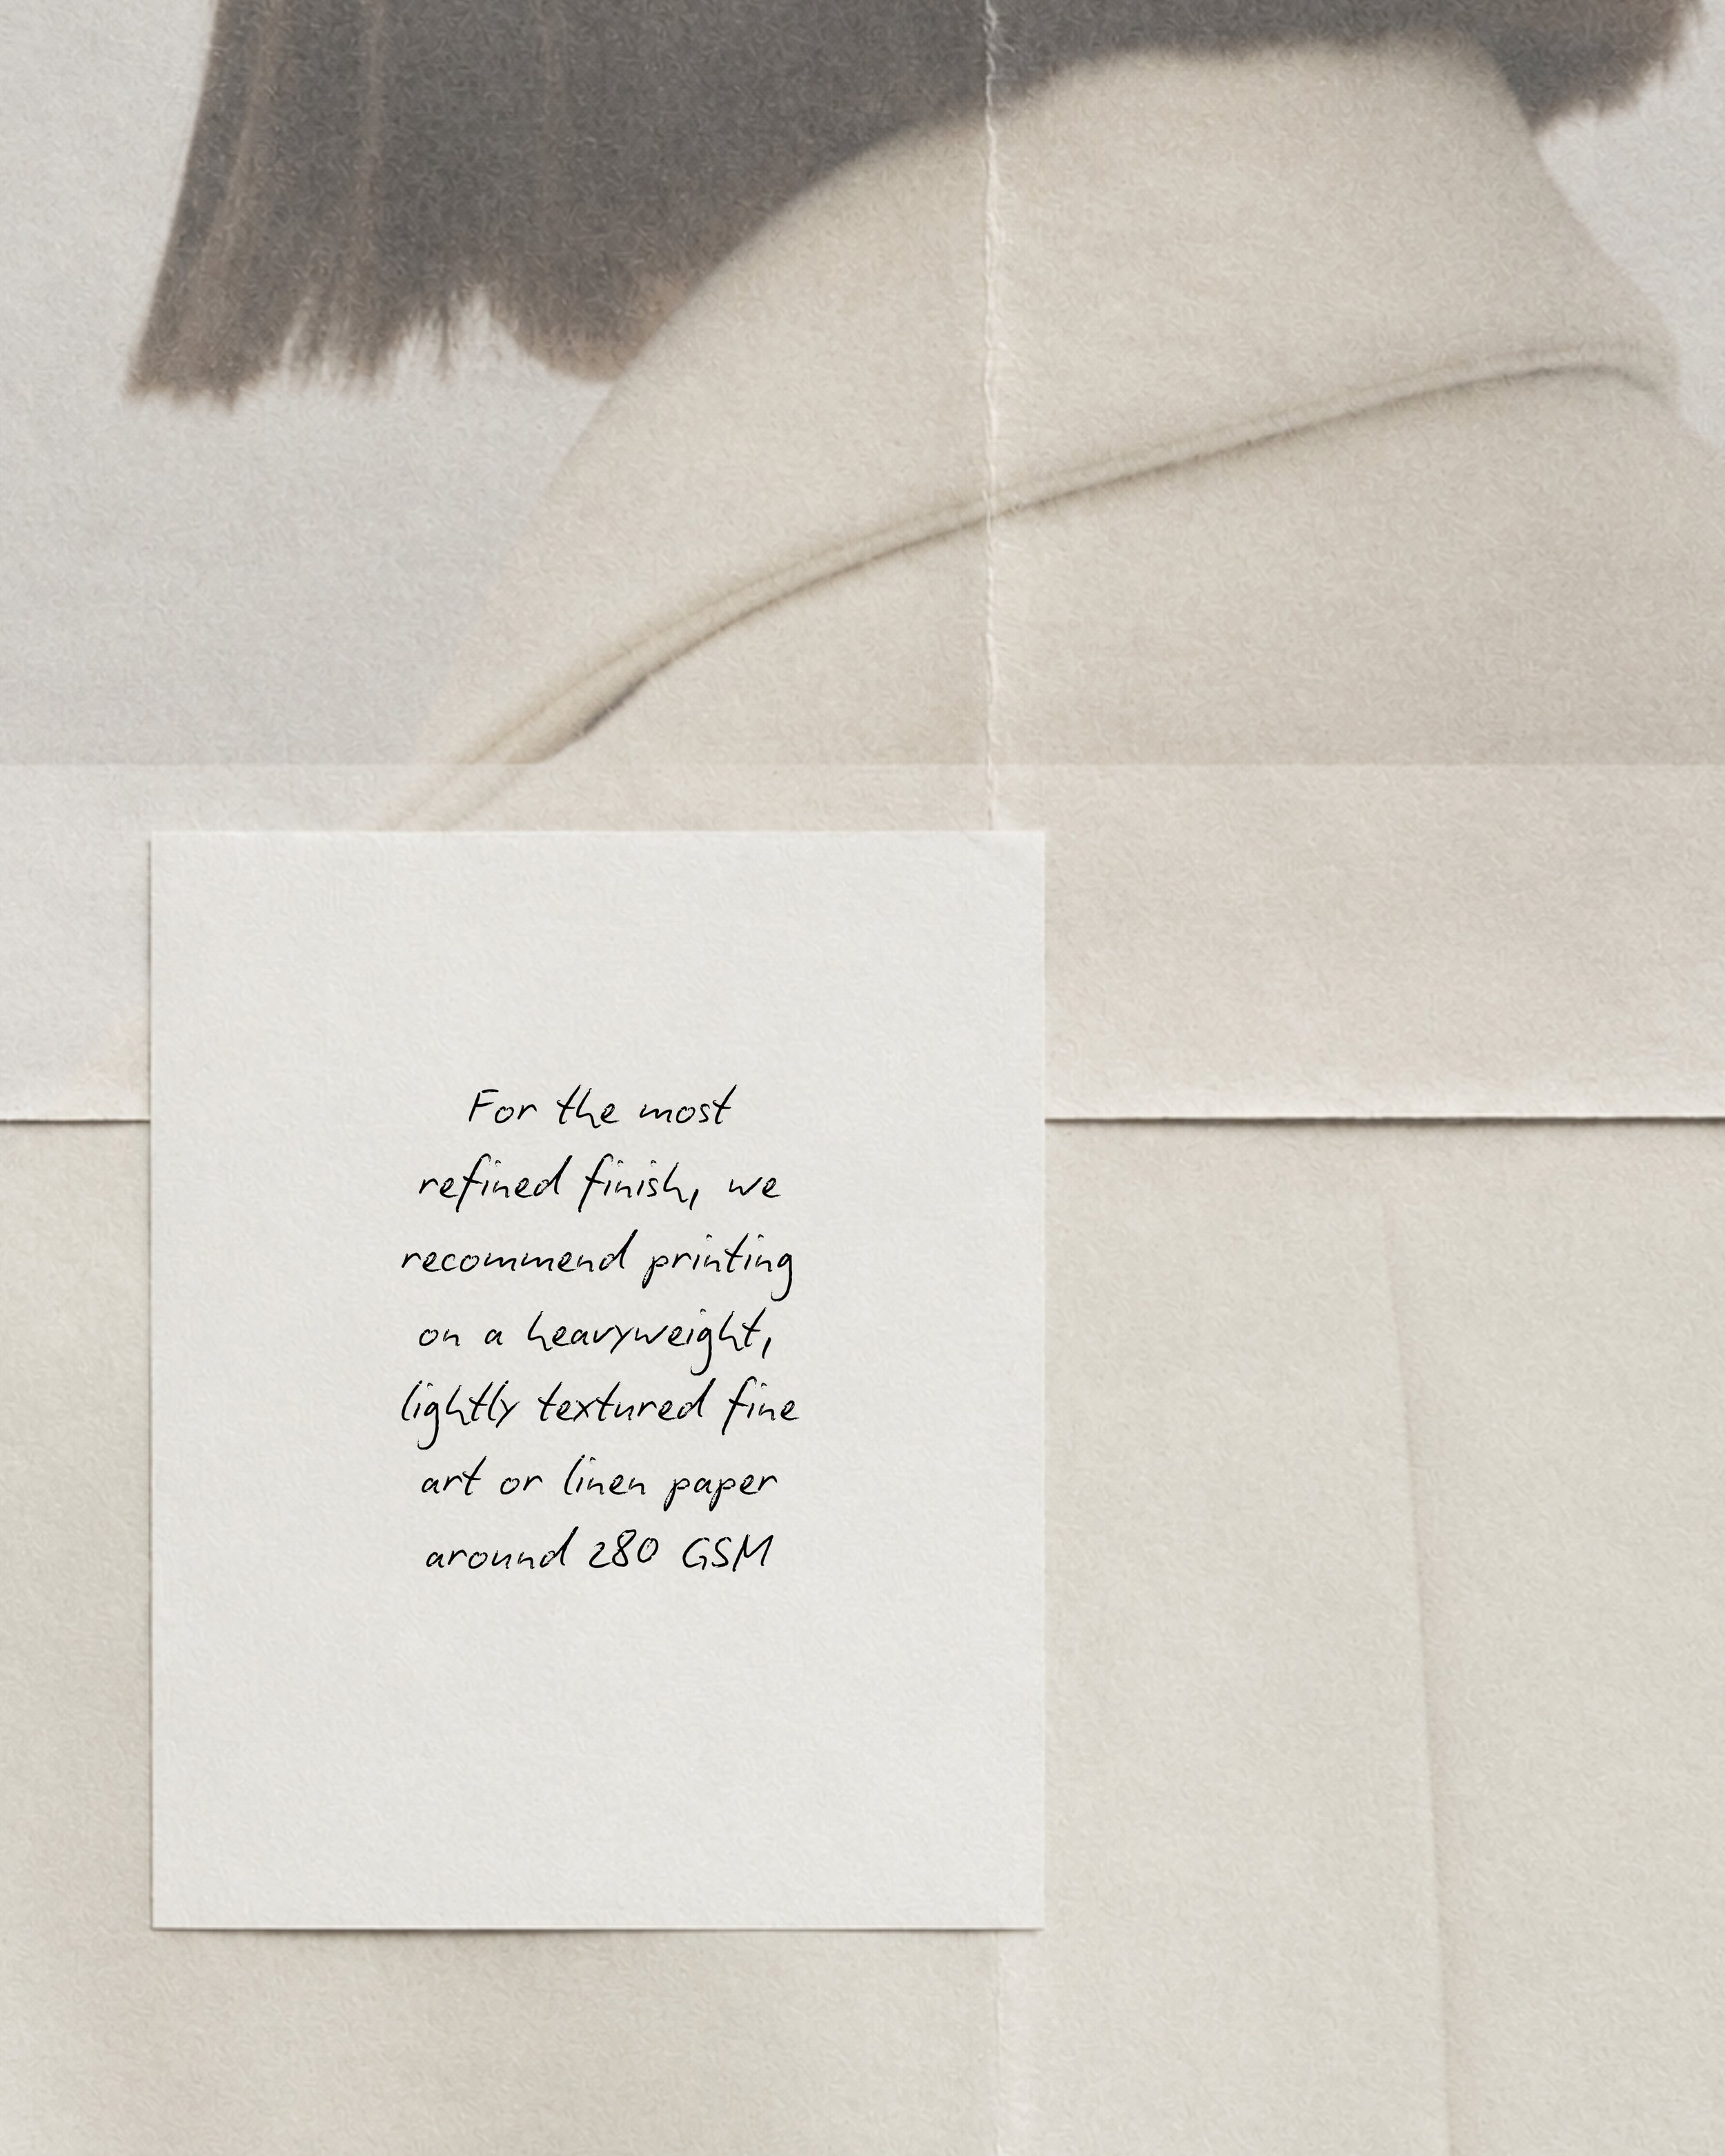 For the most
refined finish, we
recommend printing
on a heavyweight,
lightly textured fine
art or linen paper
around 280 GSM